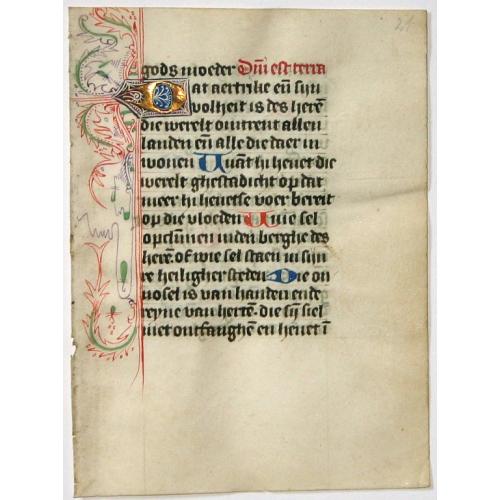 21
gods moeder Dñi est terra
Dat aertrike eñ sijn
volheit is des herẽ
die werelt omtrent allen
landen eñ alle die daer in
wonen Want hi hevet die
werelt ghestadicht op dat
meer hi hevetse voer bereit
op die vloeden Wie sel
opclimmen inden berghe des
herẽ of wie sel staen in sijn
re heiligher steden Die on
nosel is van handen ende
reyne van hertẽ die sijn siel
niet ontfanghẽ en hevet ĩ